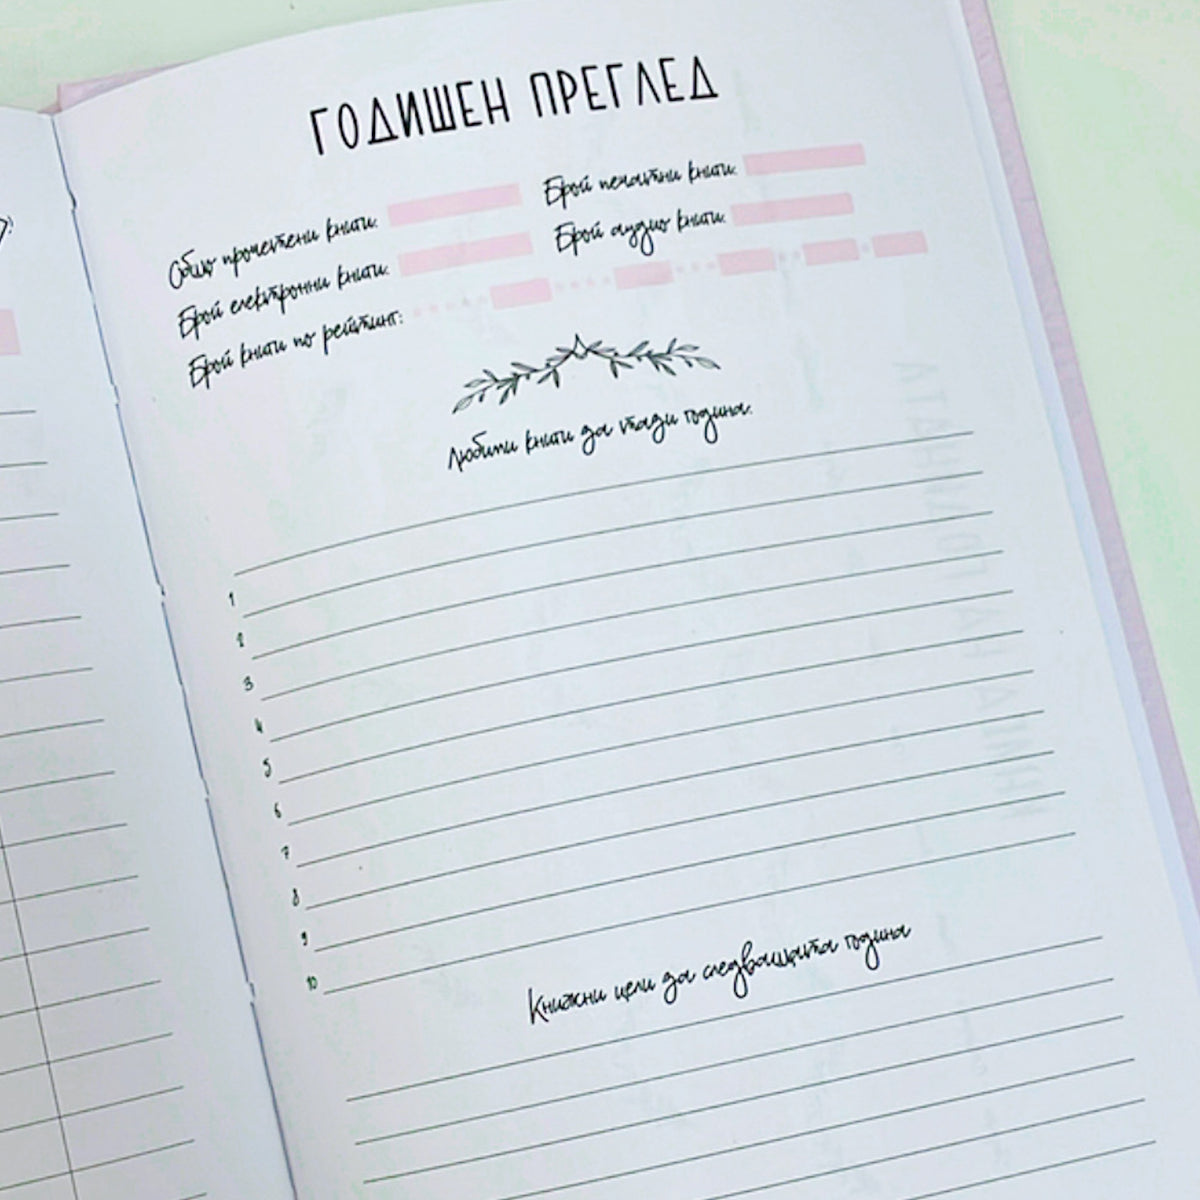 ГОДИШЕН ПРЕГЛЕД
Общо прочетени книги: Брой печатни книги:
Брой електронни книги: Брой аудио книги:
Брой книги по рейтинг:
Любими книги за тази година:
1
2
3
4
5
6
7
8
9
10
Книжни цели за следващата година